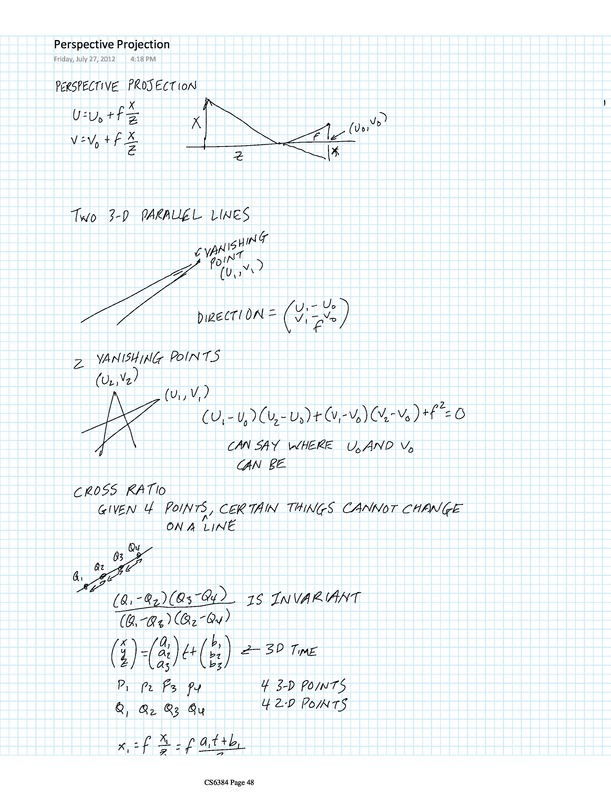 Perspective Projection
Friday, July 27, 2012 4:18 PM
PERSPECTIVE PROJECTION
U=U₀+f X/Z
V=V₀+f X/Z
X
Z
f
x
(U₀,V₀)
TWO 3-D PARALLEL LINES
VANISHING
POINT
(U₁,V₁)
DIRECTION = (U₁-U₀ V₁-V₀ f)
2 VANISHING POINTS
(U₂,V₂)
(U₁,V₁)
(U₁-U₀)(U₂-U₀)+(V₁-V₀)(V₂-V₀)+f²=0
CAN SAY WHERE U₀ AND V₀
CAN BE
CROSS RATIO
GIVEN 4 POINTS, CERTAIN THINGS CANNOT CHANGE
ON A LINE
Q₁ Q₂ Q₃ Q₄
(Q₁-Q₂)(Q₃-Q₄)/(Q₁-Q₃)(Q₂-Q₄) IS INVARIANT
(x y z)=(a₁ a₂ a₃)t+(b₁ b₂ b₃) ← 3D TIME
P₁ P₂ P₃ P₄ 4 3-D POINTS
Q₁ Q₂ Q₃ Q₄ 4 2-D POINTS
x₁=f x₁/z =f a₁t+b₁
CS6384 Page 48